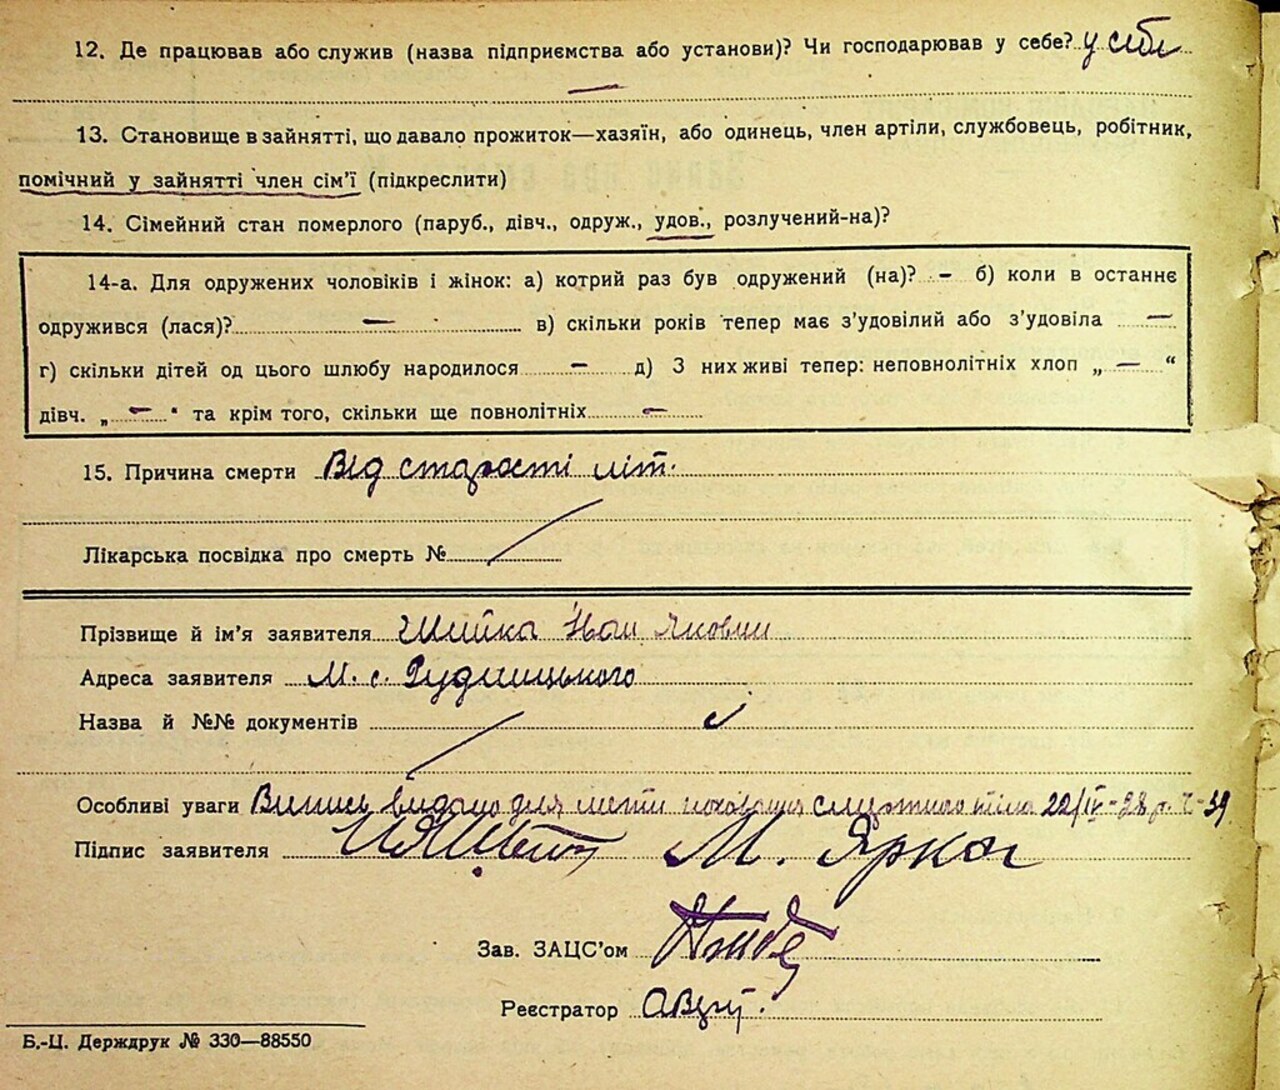 12. Де працював або служив (назва підприємства або установи)? Чи господарював у себе? у себе
—
13. Становище в зайнятті, що давало прожиток—хазяїн, або одинець, член артіли, службовець, робітник,
помічний у зайнятті член сім'ї (підкреслити)
14. Сімейний стан померлого (паруб., дівч., одруж., удов., розлучений-на)?
14-а. Для одружених чоловіків і жінок: а) котрий раз був одружений (на)? — б) коли в останнє
одружився (лася)? — в) скільки років тепер має з'удовілий або з'удовіла —
г) скільки дітей од цього шлюбу народилося — д) З них живі тепер: неповнолітніх хлоп „ — “
дівч. „ — “ та крім того, скільки ще повнолітніх —
15. Причина смерти Від старости літ.
Лікарська посвідка про смерть №
Прізвище й ім'я заявителя Шийка Якович
Адреса заявителя М. с. Рудницького
Назва й №№ документів
Особливі уваги Випись видано для 22/IV-28 р. 39
Підпис заявителя М. Ярког
Зав. ЗАЦС'ом
Реєстратор
Б.-Ц. Держдрук № 330—88550